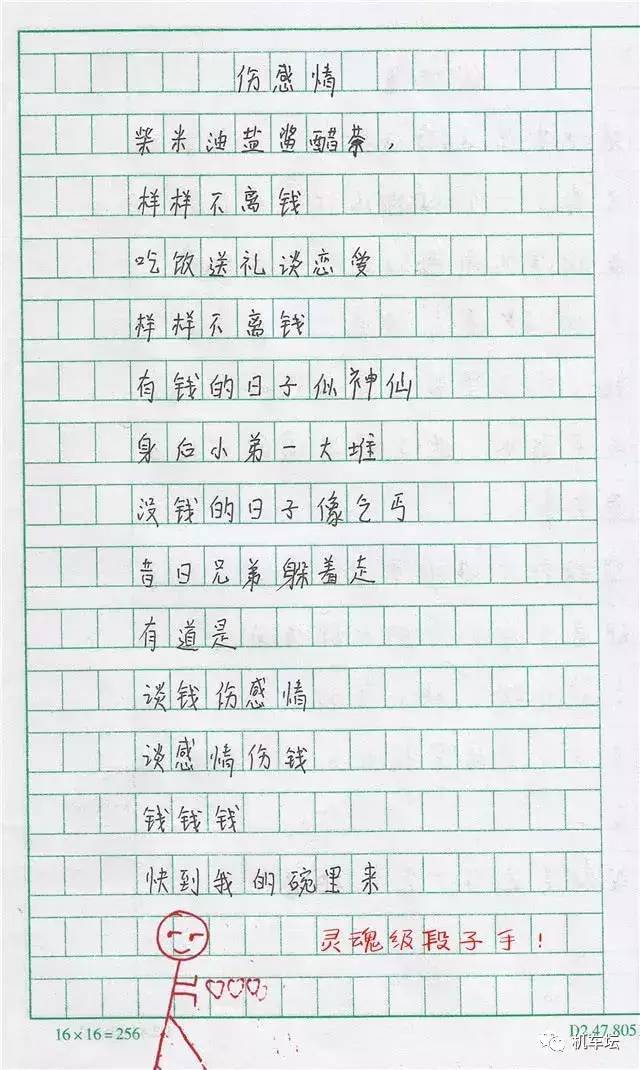 伤感情
柴米油盐酱醋茶，
样样不离钱
吃饭送礼谈恋爱
样样不离钱
有钱的日子似神仙
身后小弟一大堆
没钱的日子像乞丐
昔日兄弟躲着走
有道是
谈钱伤感情
谈感情伤钱
钱钱钱
快到我的碗里来
灵魂级段子手！
16×16=256
D2.47.805
机车坛